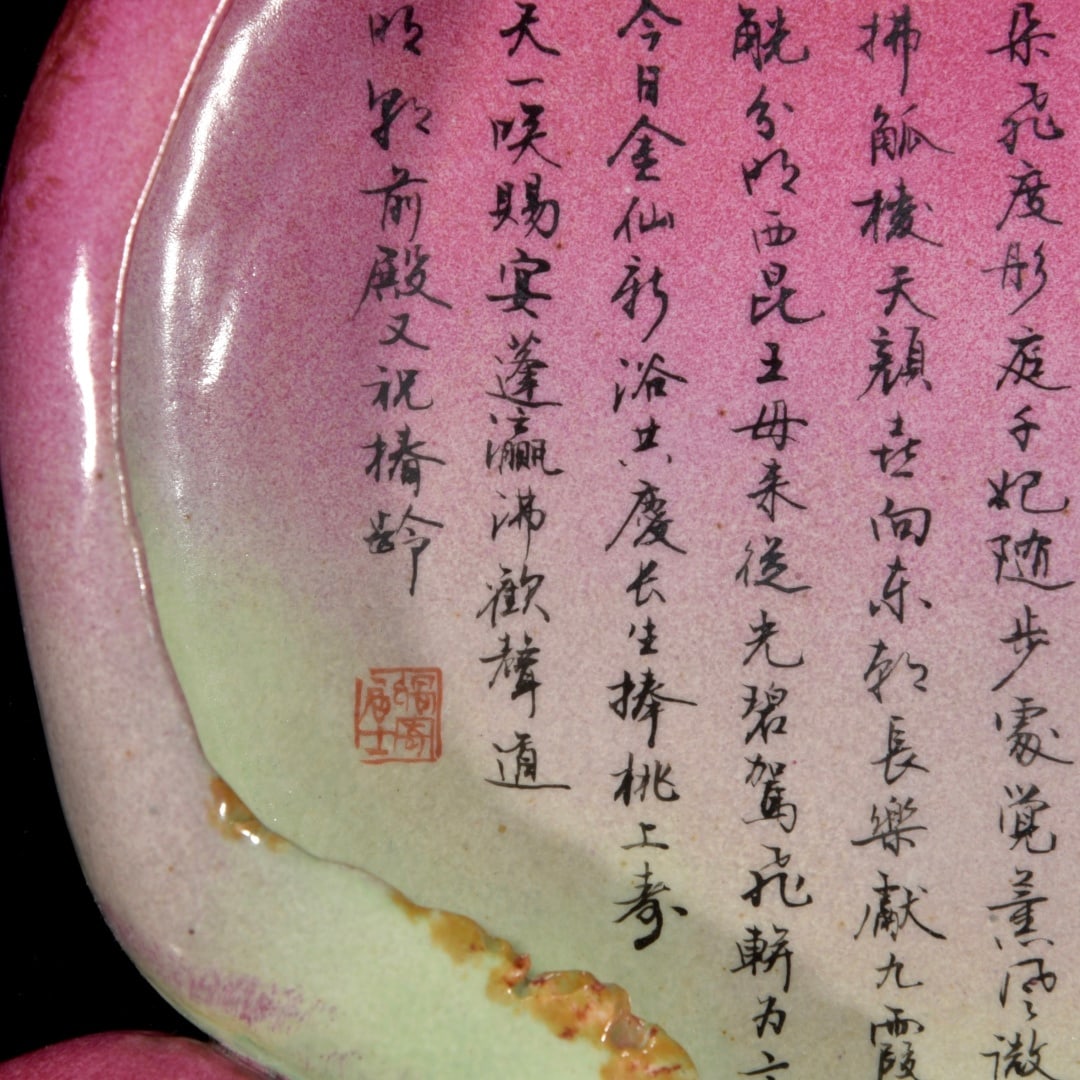 朵飛度彤庭千妃随步處覚薰風微
拂觚棱天顔喜向东朝長樂獻九霞
觥分明西昆王母来從光碧駕飛軿为
今日金仙新浴共慶长生捧桃上寿
天一咲賜宴蓬瀛沸歡聲道
明朝前殿又祝椿齡
居士